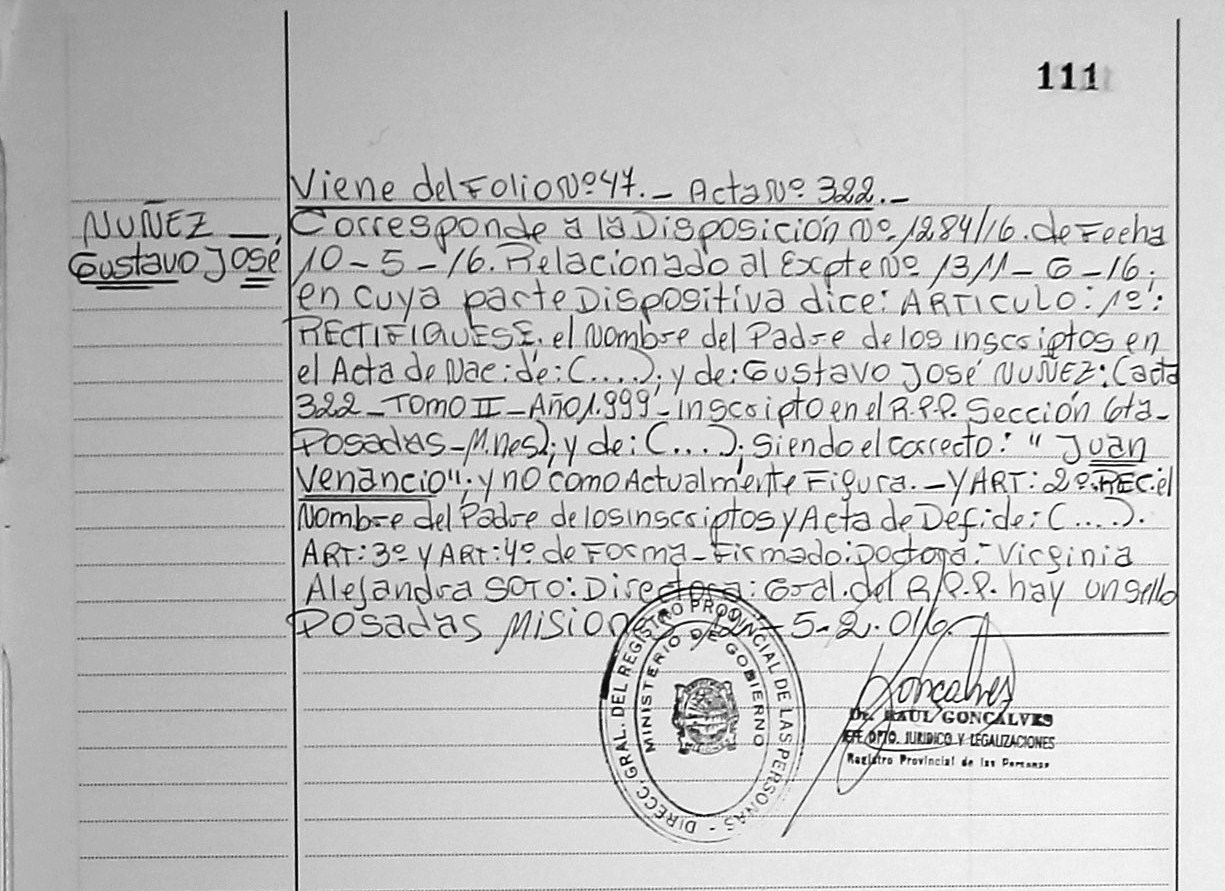 111
Viene del Folio Nº 47._ Acta Nº 322._
NUÑEZ _
Gustavo José
Corresponde a la Disposición Nº 1284/16. de Fecha
10-5-16. Relacionado al Expte Nº 1311-G-16;
en cuya parte Dispositiva dice: ARTICULO: 1º:
RECTIFIQUESE. el Nombre del Padre de los inscriptos en
el Acta de Nac: de: (....); y de: Gustavo José NUÑEZ: (acta
322_TOMO II_Año 1.999_inscripto en el R.P.P. Sección 6ta_
Posadas_Mnes); y de: (....); siendo el correcto: "Juan
Venancio"; y no como Actualmente Figura._ Y ART: 2º. REC: el
Nombre del Padre de los inscriptos y Acta de Def: de: (....).
ART: 3º Y ART: 4º de Forma_Firmado: Doctora: Virginia
Alejandra SOTO: Directora: Gral. del R.P.P. hay un sello
Posadas Misiones, 12-5-2.016._
DIRECC. GRAL. DEL REGISTRO PROVINCIAL DE LAS PERSONAS -
MINISTERIO DE GOBIERNO
Goncalves
Dr. RAUL GONCALVES
JEFE DPTO. JURIDICO Y LEGALIZACIONES
Registro Provincial de las Personas